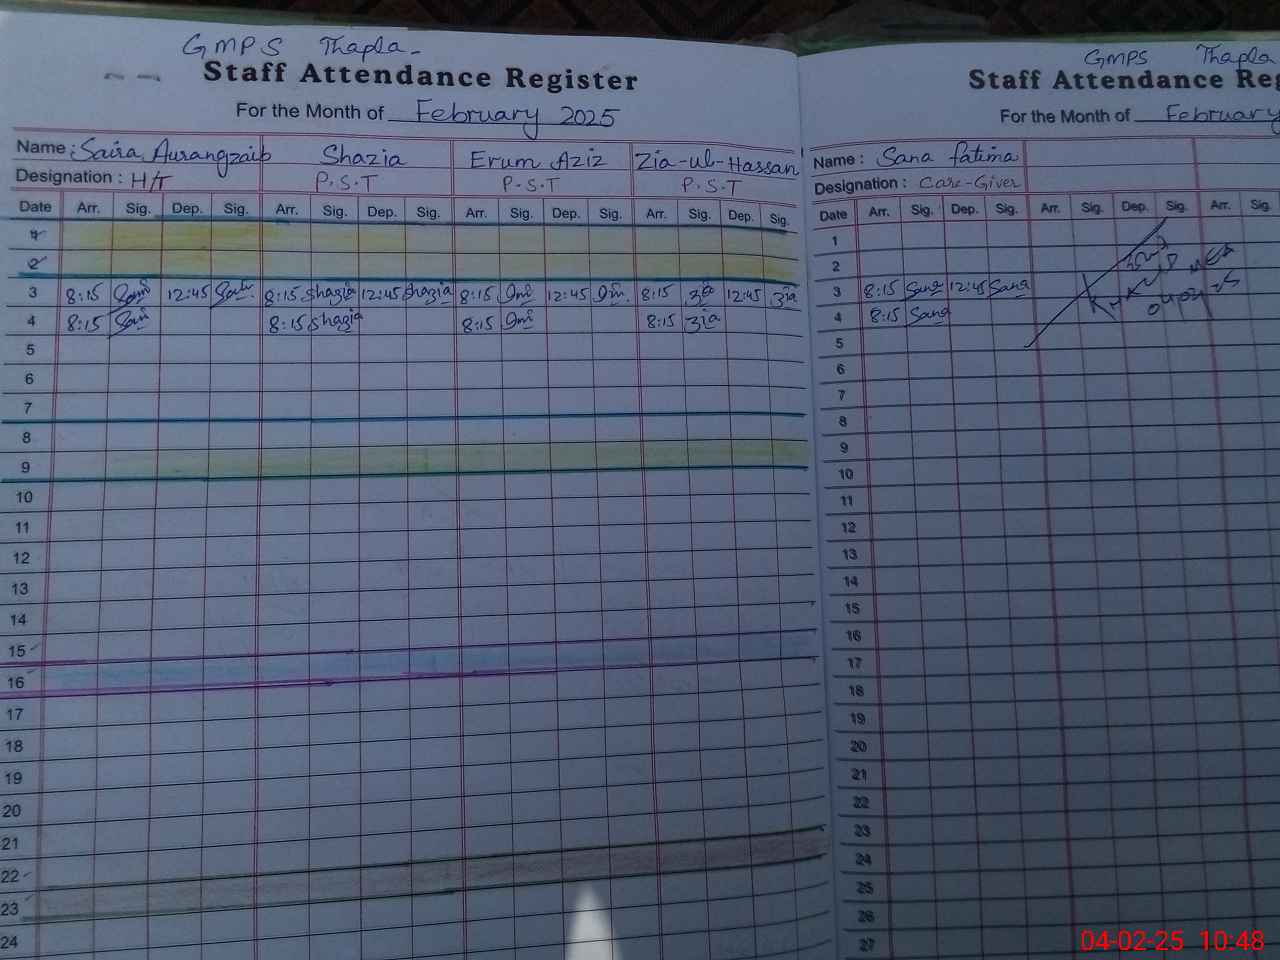 GMPS Thapla-
Staff Attendance Register
For the Month of February 2025
Name: Saira Aurangzaib Shazia Erum Aziz Zia-ul-Hassan
Designation: H/T P.S.T P.S.T P.S.T
Date Arr. Sig. Dep. Sig. Arr. Sig. Dep. Sig. Arr. Sig. Dep. Sig. Arr. Sig. Dep. Sig.
1
2
3 8:15 12:45 8:15 Shazia 12:45 Shazia 8:15 12:45 8:15 Zia 12:45 Zia
4 8:15 8:15 Shazia 8:15 8:15 Zia
5
6
7
8
9
10
11
12
13
14
15
16
17
18
19
20
21
22
23
24
GMPS Thapla
Staff Attendance Reg
For the Month of February
Name: Sana fatima
Designation: Care-Giver
Date Arr. Sig. Dep. Sig. Arr. Sig. Dep. Sig. Arr. Sig.
1
2
3 8:15 Sana 12:45 Sana
4 8:15 Sana
5
6
7
8
9
10
11
12
13
14
15
16
17
18
19
20
21
22
23
24
25
26
27
04-02-25 10:48